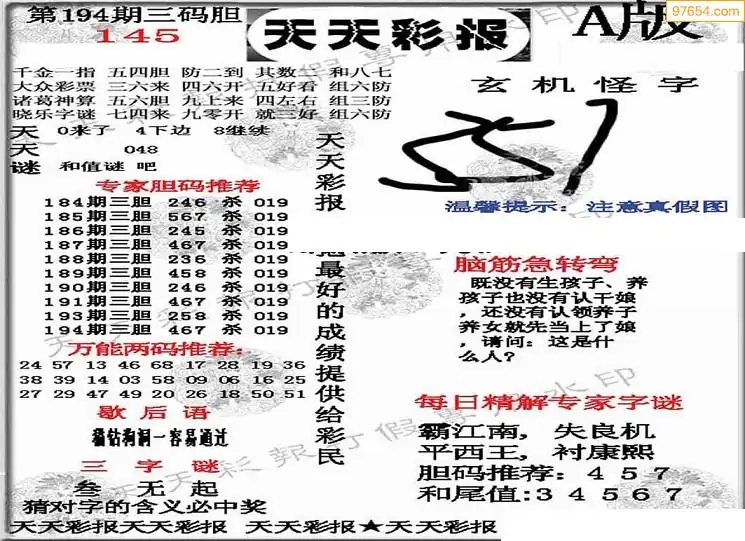 第194期三码胆
145
天天彩报
A版
97654.com
千金一指 五四胆 防二到 其数二 和八七
大众彩票 三六来 四六开 五好看 组六防
诸葛神算 五六胆 九上来 四左右 组三防
晓乐字谜 七四来 九零开 就三好 组六防
天 0来了 4下边 8继续
天 048
谜 和值谜 吧
玄机怪字
557
温馨提示: 注意真假图
专家胆码推荐
184期三胆 246 杀 019
185期三胆 567 杀 019
186期三胆 245 杀 019
187期三胆 467 杀 019
188期三胆 236 杀 019
189期三胆 458 杀 019
190期三胆 246 杀 019
191期三胆 467 杀 019
193期三胆 258 杀 019
194期三胆 467 杀 019
万能两码推荐:
24 57 13 46 68 17 28 19 36
38 39 14 03 58 09 06 16 25
27 29 47 49 20 26 18 50 51
歇后语
猫钻狗洞一容易通过
三字谜
叁 无 起
猜对字的含义必中奖
天天彩报
最好的成绩提供给彩民
脑筋急转弯
既没有生孩子、养
孩子也没有认干娘
,还没有认领养子
养女就先当上了娘
,请问:这是什
么人?
每日精解专家字谜
霸江南,失良机
平西王,衬康熙
胆码推荐:457
和尾值:34567
天天彩报天天彩报 天天彩报★天天彩报